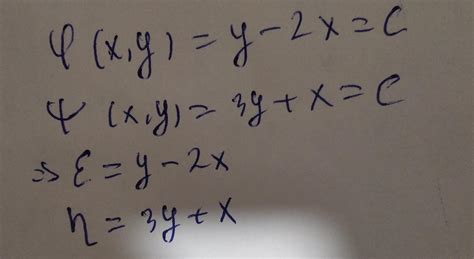 φ (x,y) = y - 2x = C
ψ (x,y) = 3y + x = C
⇒ ε = y - 2x
η = 3y + x